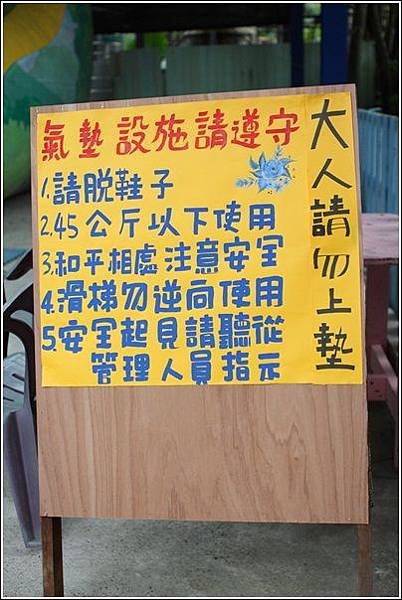 氣墊設施請遵守
1.請脫鞋子
2.45公斤以下使用
3.和平相處注意安全
4.滑梯勿逆向使用
5.安全起見請聽從
管理人員指示
大人請勿上墊